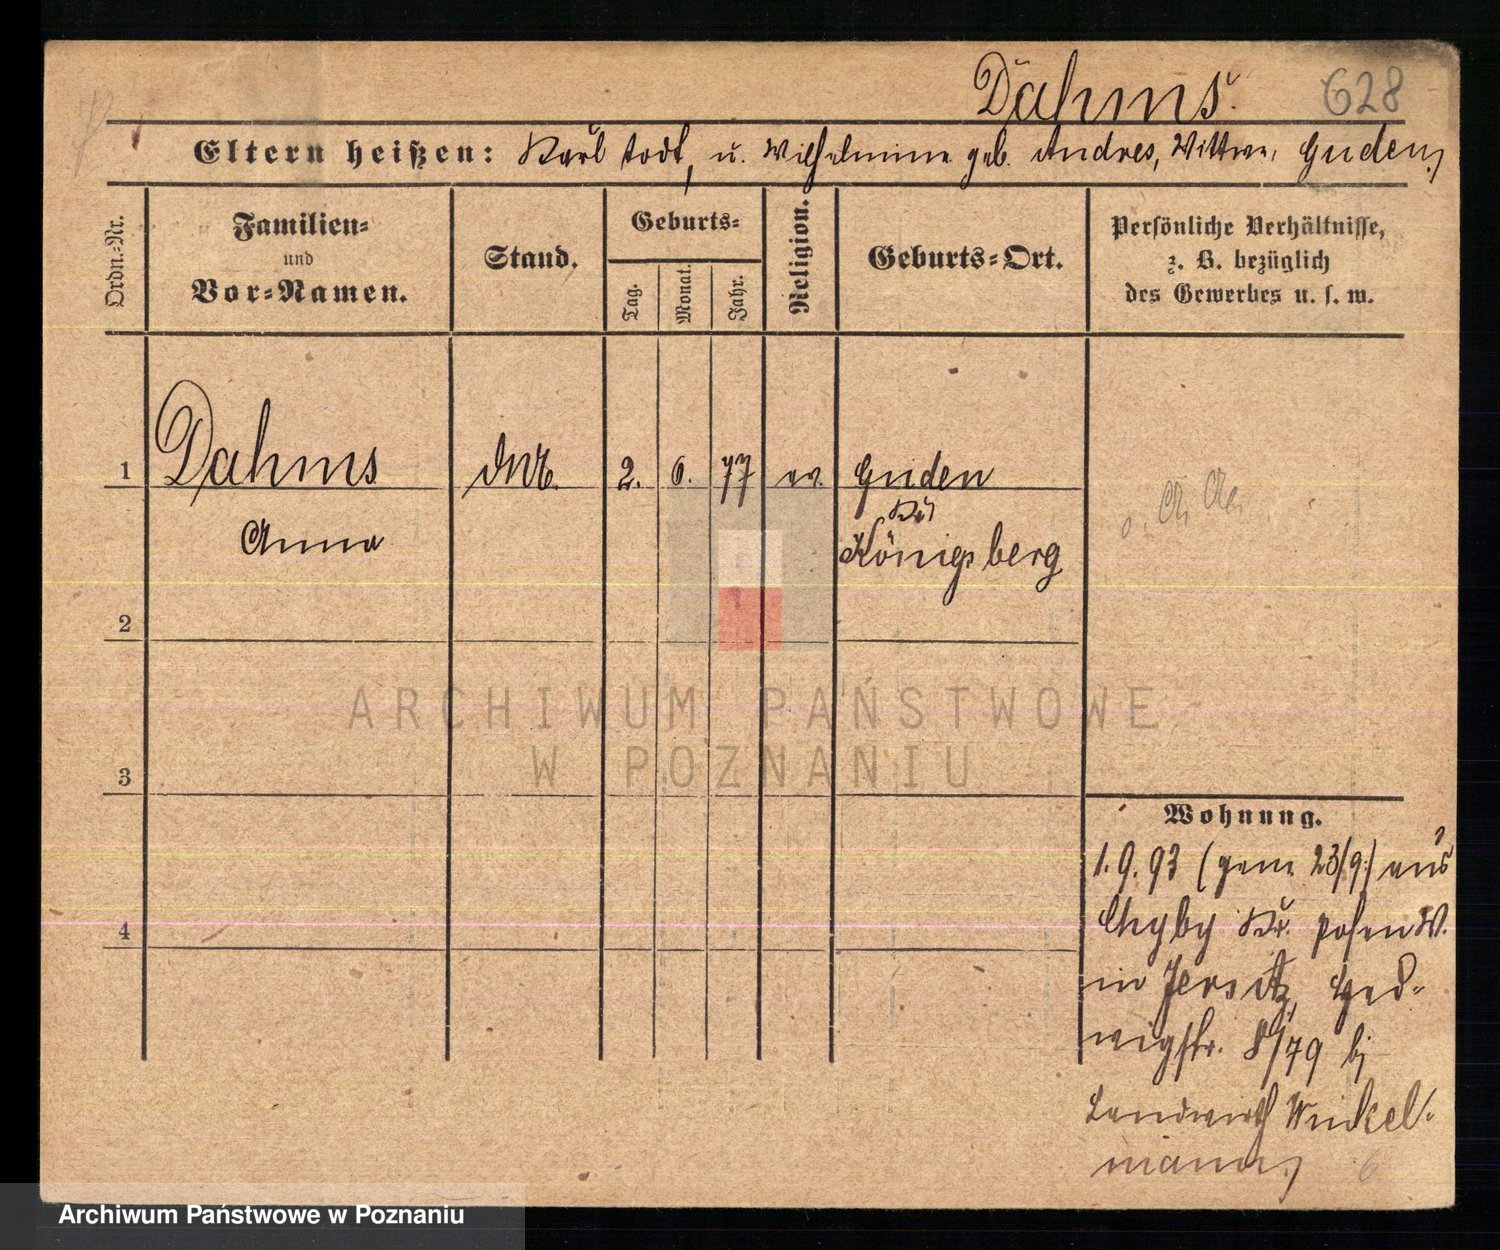 Dahms.
628
Eltern heißen: Karl todt, u. Wilhelmine geb. Andres, Wittwe, Guden,
Ordn.=Nr.
Familien=
und
Vor=Namen.
Stand.
Geburts=
Tag.
Monat.
Jahr.
Religion.
Geburts=Ort.
Persönliche Verhältnisse,
z. B. bezüglich
des Gewerbes u. s. w.
1
Dahms
2. 6. 77 ev. Guden
Anna
Kr.
Königsberg
2
3
4
Wohnung.
1.9.93 (gem. 23/9.) aus
Chyby Kr. Posen W.
in Jersitz, Hed-
wigstr. 8/79 bj
Landwirth Winkel-
mann,
6
ARCHIWUM PAŃSTWOWE
W POZNANIU
Archiwum Państwowe w Poznaniu